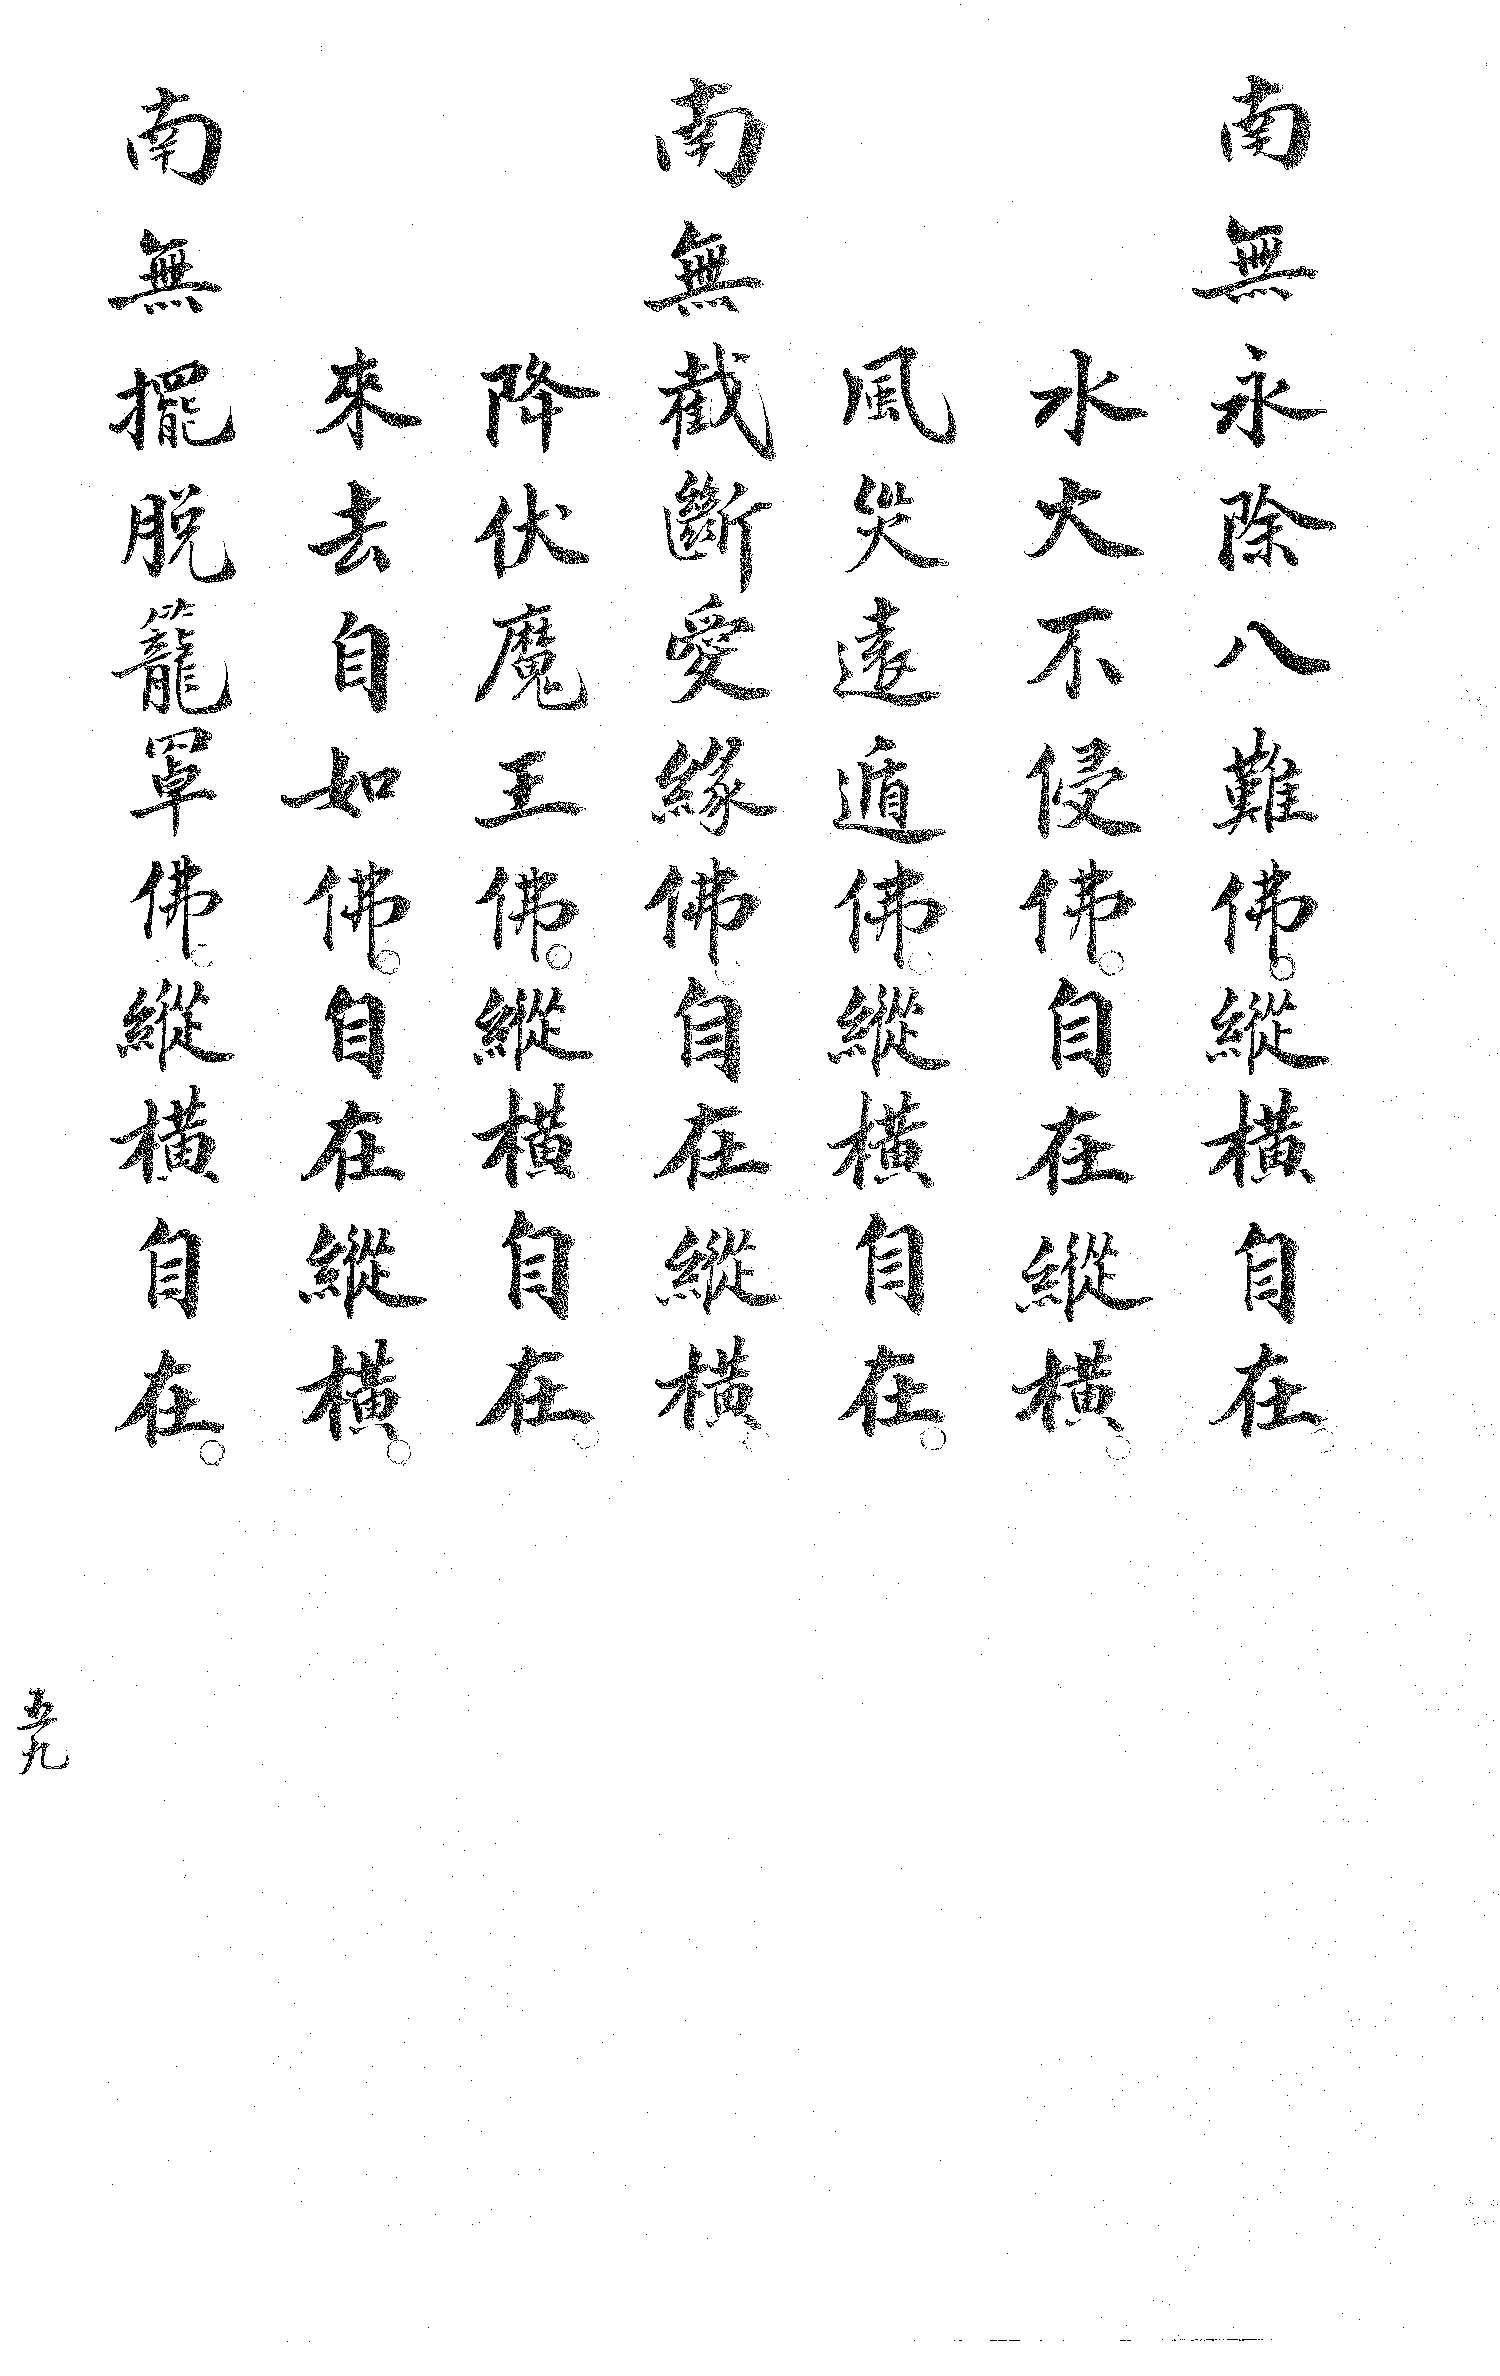 南無永除八難佛。縱橫自在。
水火不侵佛。自在縱橫。
風災遠遁佛。縱橫自在。
南無截斷愛緣佛。自在縱橫。
降伏魔王佛。縱橫自在。
來去自如佛。自在縱橫。
南無擺脫籠罩佛。縱橫自在。
五九